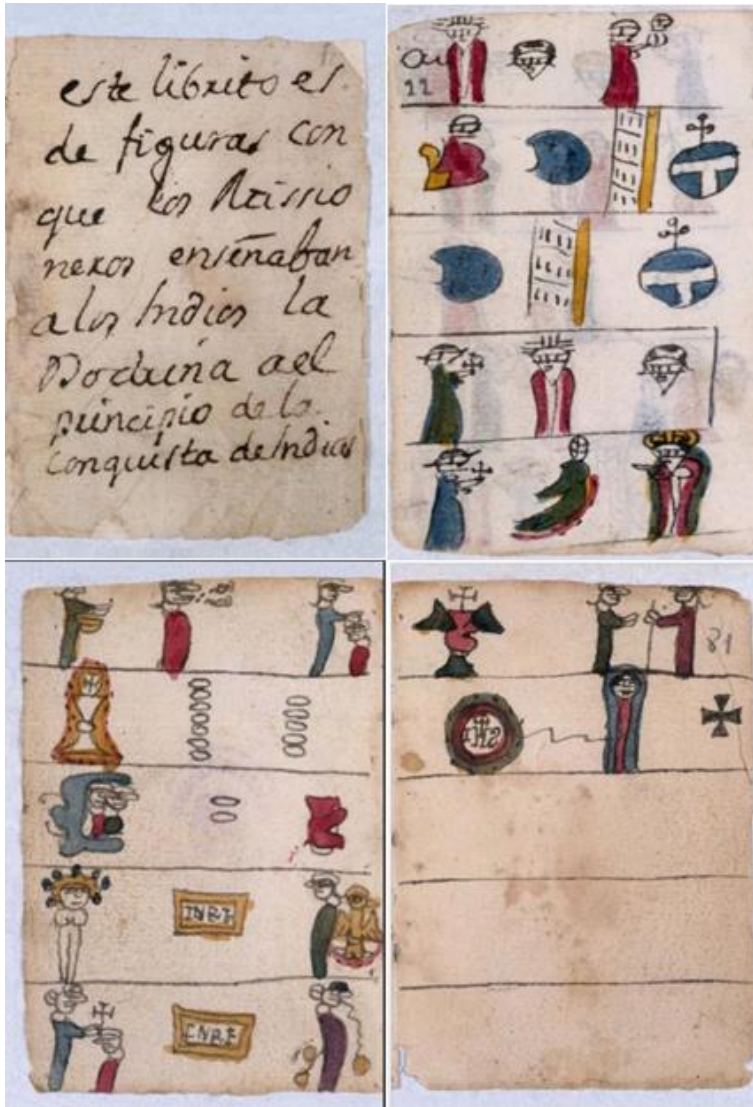 este librito es
de figuras con
que los Missio
neros enseñaban
a los Indios la
Doctrina a el
principio de la
conquista de Indias
22
81
INRI